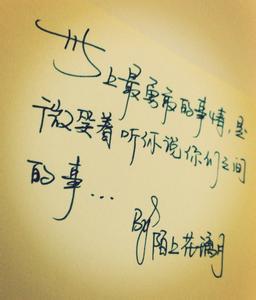 世上最勇敢的事情,是
微笑着听你说你们之间
的事...
By 陌上花滴月